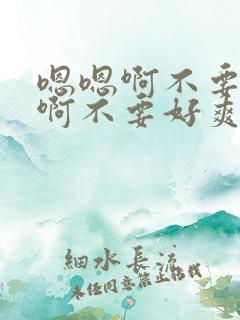 嗯嗯啊不要
啊不要好爽
細水長流
未任同意禁止搭載